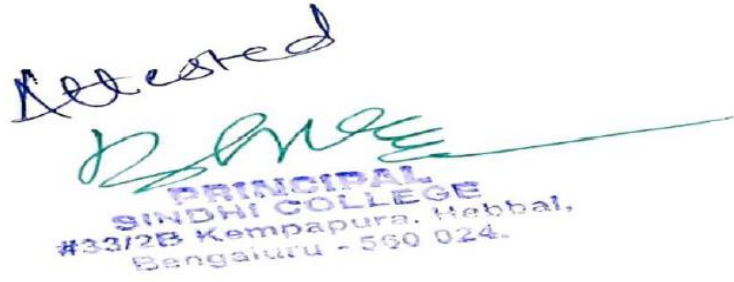 Attested
PRINCIPAL
SINDHI COLLEGE
#33/2B Kempapura, Hebbal,
Bengaluru - 560 024.